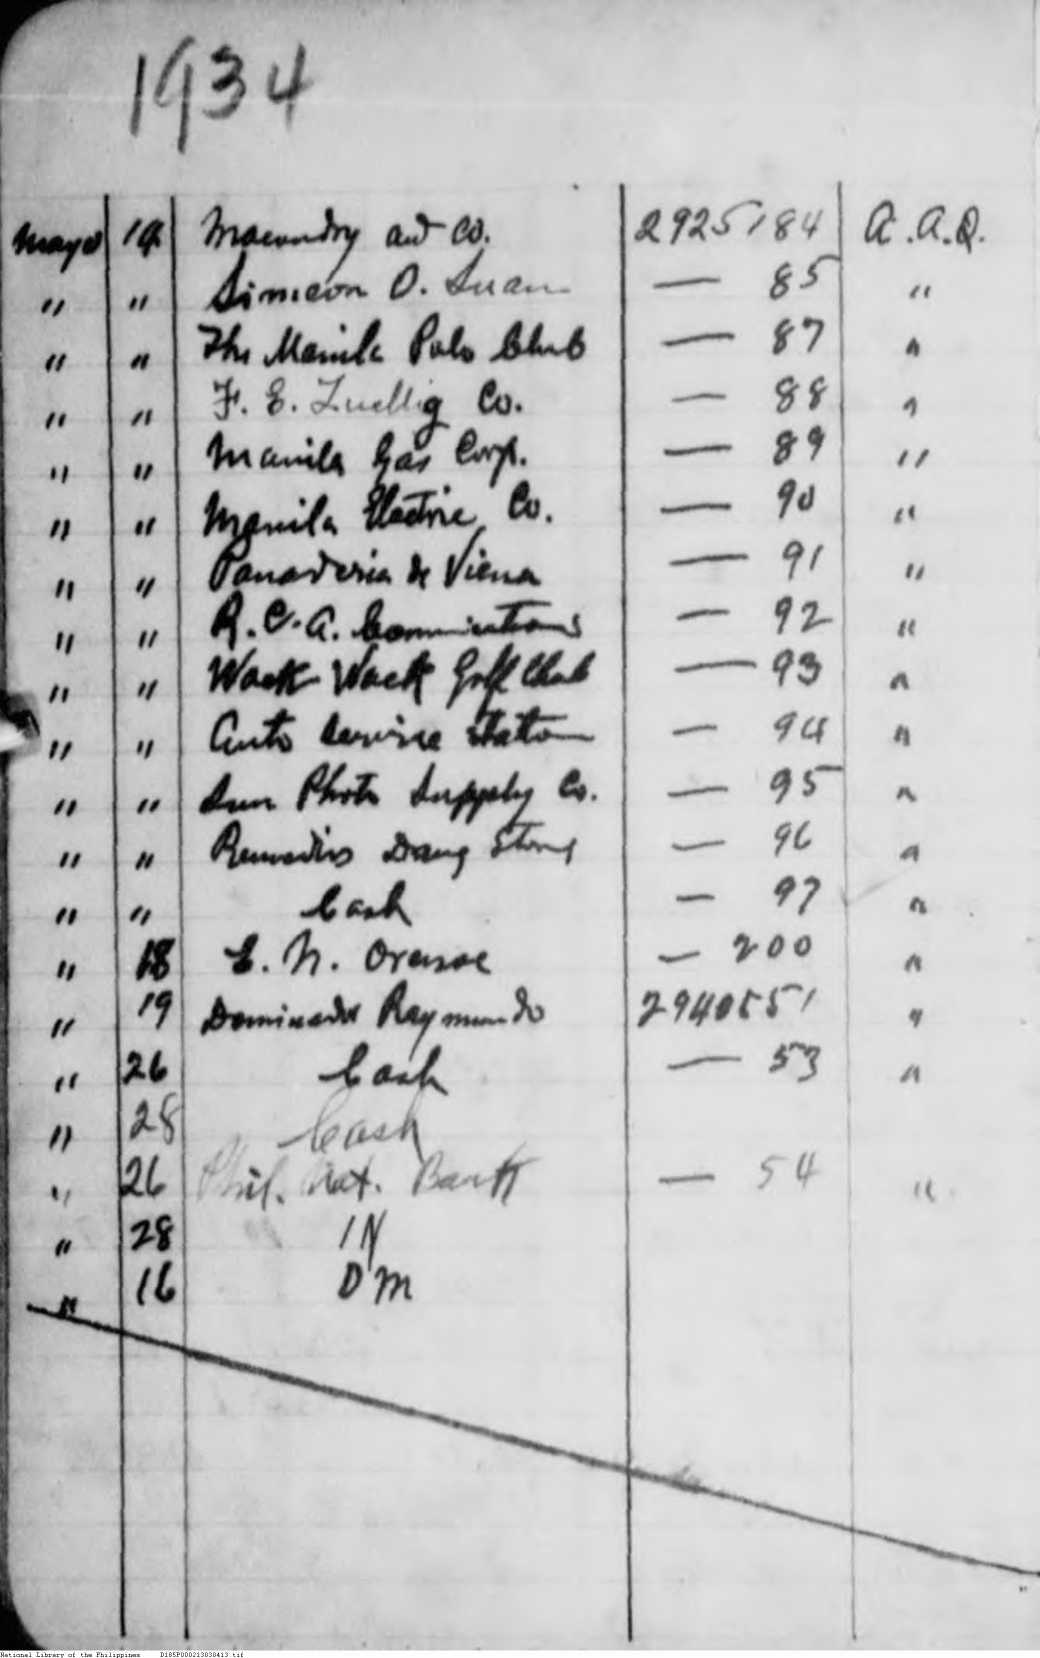 1934
Mayo 14 Macondry and Co. 2925184 A.A.Q.
" " Simeon O. — 85 "
" " The Manila Polo Club — 87 "
" " F. E. Zuellig Co. — 88 "
" " Manila Gas Corp. — 89 "
" " Manila Electric Co. — 90 "
" " Panaderia de Viena — 91 "
" " R.C.A. Communications — 92 "
" " Wack Wack Golf Club — 93 "
" " Auto Service Station — 94 "
" " Sun Photo Supply Co. — 95 "
" " Remedios — 96 "
" " Cash — 97 "
" 18 E. N. Orense — 200 "
" 19 Dominador Raymundo 2940551 "
" 26 Cash — 53 "
" 28 Cash
" 26 Phil. Nat. Bank — 54 "
" 28 IN
" 16 DM
National Library of the Philippines D185P000213030413.tif